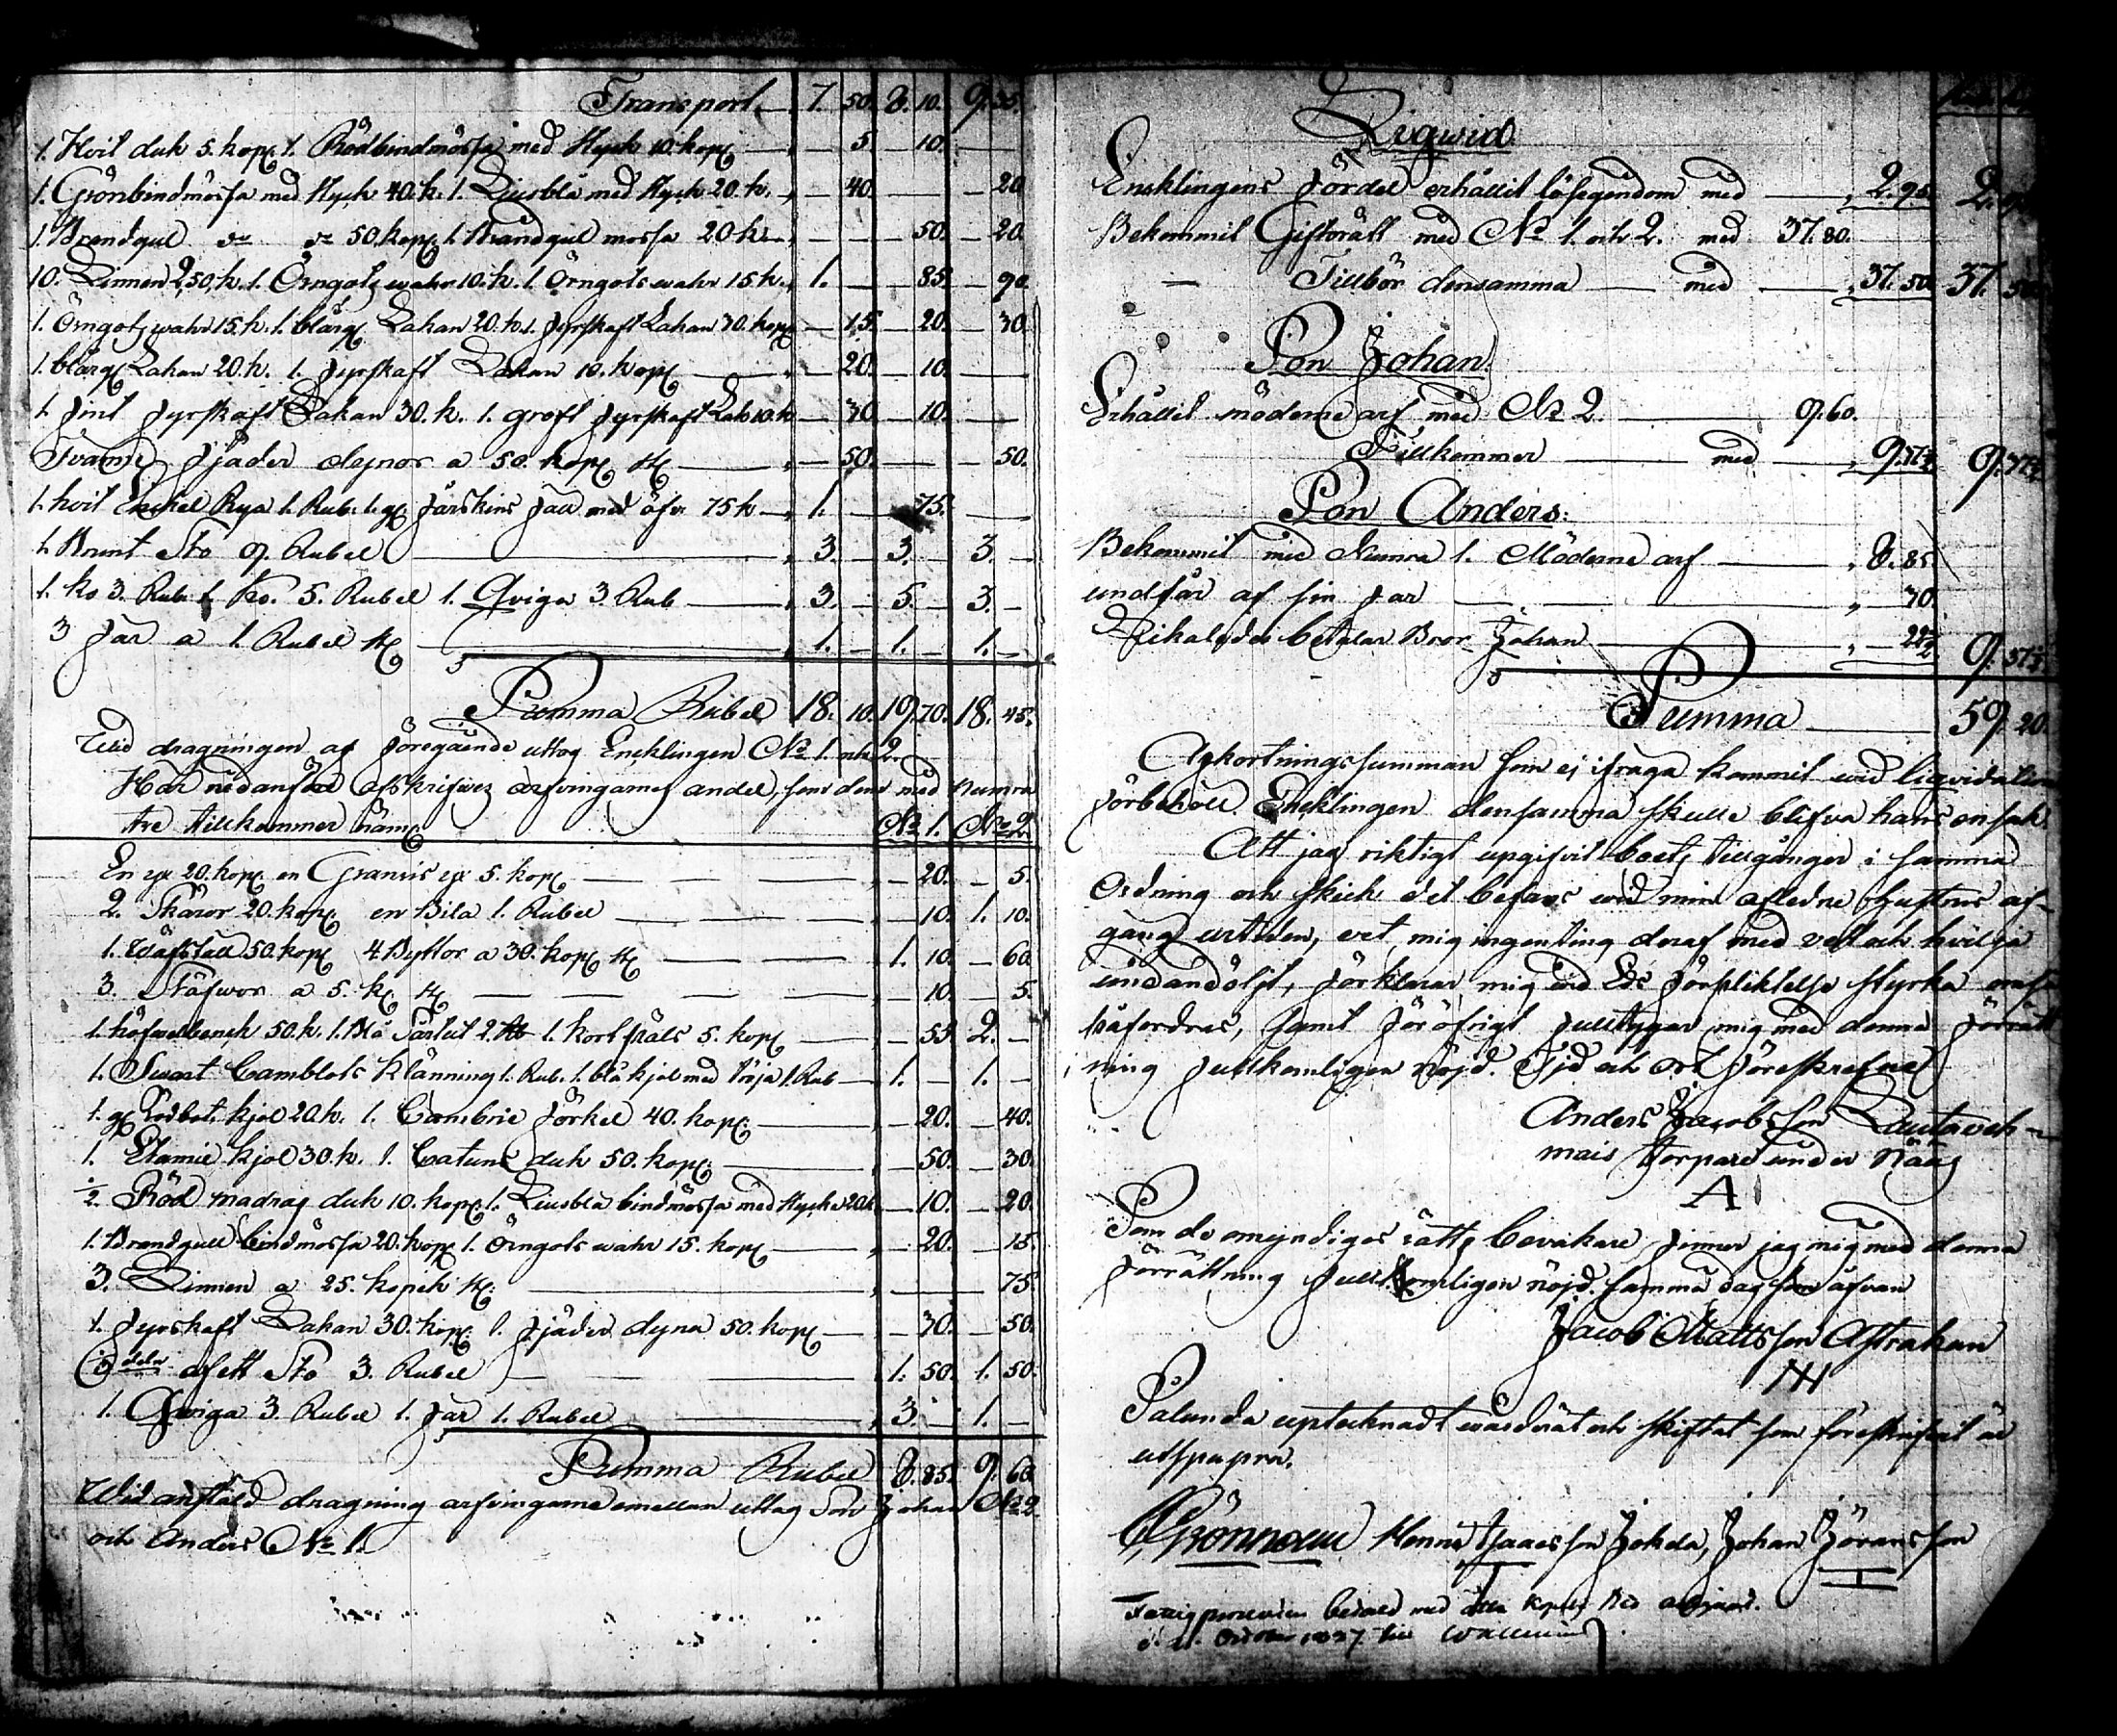 Transport 7. 50. 8. 10. 9. 35.
1. Hvit duk 5. kop. 1. Rödbindmössa med Styck 10. kop. — 5. — 10. —
1. Grönbindmössa med Styck 40. k. 1. Ljusblå med Styck 20. k. — 40. — — 20
1. Brandgul do do 50. kop. 1. Brandgul mössa 20 k. — — 50. — 20
10. Linnen 2,50, k. 1. Örngots wahr 10. k. 1. Örngots wahr 15 k. 1. — — 85. — 90.
1. Örngots wahr 15. k. 1. blärg. Lakan 20. k. 1. fyrskaft Lakan 30. kop. — 15. — 20. — 30.
1. blärg. Lakan 20. k. 1. fyrskaft Lakan 10. kop. — 20. — 10. —
1. fint fyrskaft Lakan 30. k. 1. groft fyrskaft Lak 10. k — 30. — 10. —
Tvänne fjäder dynor a 50. kop. st. — 50. — — 50.
1. hvit Enkel Rya 1. Rub. 1. gl. fårskins fäll med öfv. 75 k. 1. — — 75. —
1. Brunt Sto 9. Rubel 3. — 3. — 3. —
1. ko 3. Rub. 1. ko. 5. Rubel 1. Qviga 3. Rub 3. — 5. — 3. —
3 får a 1. Rubel st. 1. — 1. — 1. —
Summa Rubel 18. 10. 19. 70. 18. 45.
Wid dragningen af föregående uttog Encklingen No 1. och 2.
Här nedanföre afskrifves arfvingarnes andel, som dem med numro
tre tillkommer näml. No 1. No 2
En yx 20. kop. en Granris yx 5. kop. — 20. — 5.
2. Skäror 20. kop. en Bila 1. Rubel — 10. 1. 10.
1. Wäfstall 50. kop. 4. Byttor a 30. kop. st. 1. 10. — 60.
3. Stäfwor a 5. k. st. — 10. — 5.
1. höfvelbänck 50. k. 1. Blå 2. Rb 1. kort 5. kop. — 55 2. —
1. Swart Camblots Klänning 1. Rub. 1. blå kjol med tröja 1. Rub 1. — 1. —
1. gl. kjol 20. k. 1. Cambric förkel 40. kop. — 20. — 40.
1. Etamie kjol 30. k. 1. Catuns duk 50. kop. — 50. — 30.
1/2 Röd madras duk 10. kop. 1. Ljusblå bindmössa med Stycke 20 k — 10. — 20.
1. Brandgull bindmössa 20. kop. 1. Örngots wahr 15. kop. — 20. — 15.
3. Linnen a 25. kopek st. — — 75.
1. fyrskaft Lakan 30. kop. 1. fjäder dyna 50. kop. — 30. — 50.
delar af ett Sto 3. Rubel 1. 50. 1. 50.
1. Qwiga 3. Rubel 1. får 1. Rubel 3. — 1. —
Summa Rubel 8. 85. 9. 60.
Wid anstäld dragning arfvingarne emellan uttog Son Johan No 2
och Anders No 1.
Liqwid
Encklingens fördel erhållit lösegendom med 2. 95. 2.
Bekommit Giftorätt med No 1. och 2. med 37. 80.
— Tillbör densamma — med 37. 50. 37. 50
Son Johan.
Erhållit möderne arf med No 2. 9. 60.
Tillkommer med 9. 37½ 9. 37½
Son Anders.
Bekommit med Numro 1. Möderne arf 8. 85.
undfår af sin far — 30.
Likaledes betalar Bror Johan — 22½ 9. 37½
Summa 59. 20.
Afkortningssumman som ej ifråga kommit wid liqvidation
förbehöll Encklingen densamma skulle blifva hans ensak.
Att jag riktigt upgifvit boets tillgångar i samma
Ordning och skick det befans wid min afledne hustrus af-
gång urtiden, vet mig ingenting deraf med vett och vilja
undandöljt, förklarar mig wid Eds förpliktelse styrka om så
påfordras, samt för öfrigt fullt mig med denna förrätt
ning fullkomligen nöjd. Tid och Ort föreskrefne
Anders Jacobsson
torpare under Nääs
A
Som de omyndiges rätts bevakare finner jag mig med denna
förrättning fullkomligen nöjd. samma dag som ofvan
Jacob Mattsson Astrakan
Sålunda uptecknadt värderat och skiftat som föreskrifvit är
utsupra.
Grönroux Isaacsson Johan Jöransson
betald med åtta Kopek
1837